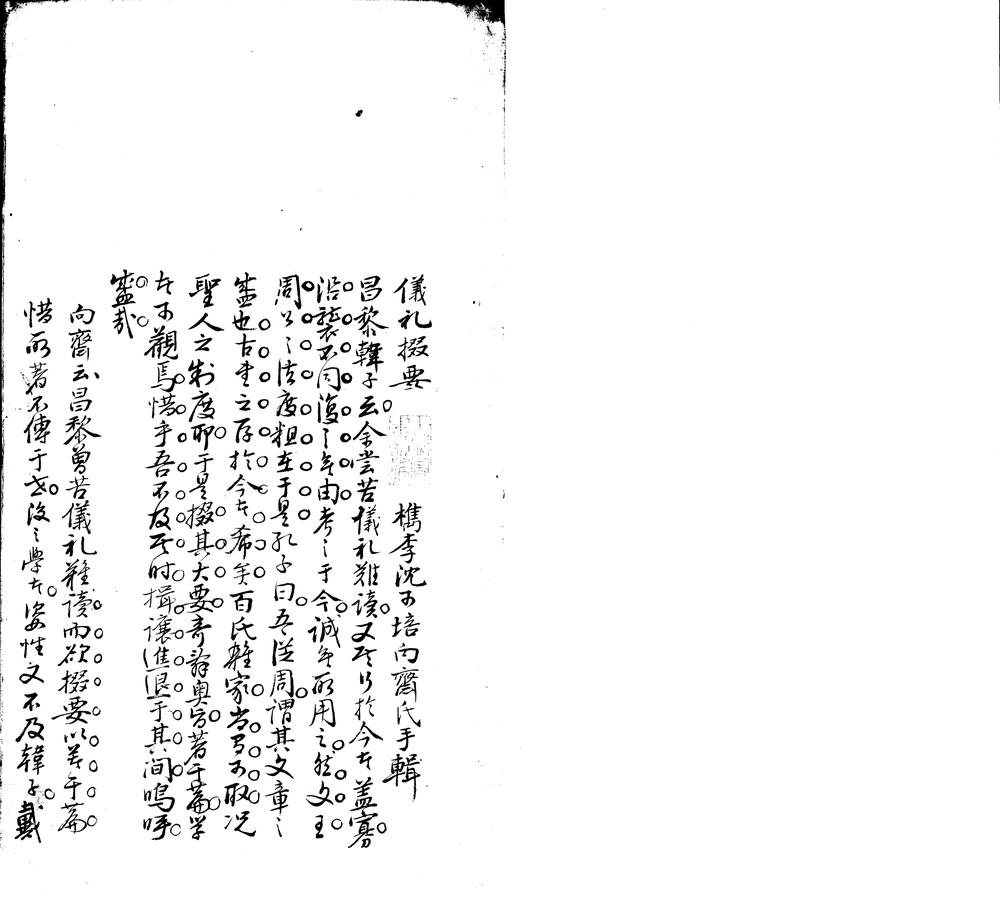 儀礼掇要　檇李沈可培向齋氏手輯
昌黎韓子云余嘗苦儀礼難讀又其行於今者蓋寡
沿襲不同復之無由考之于今誠無所用之然文王
周公之法度粗在于是孔子曰吾従周謂其文章之
盛也古書之存於今者希矣百氏雜家尚有可取况
聖人之制度耶于是掇其大要奇辞奥旨著于篇学
者可觀焉惜乎吾不及其时揖讓進退于其间嗚呼
盛哉
向齋云昌黎曾苦儀礼難讀而欲掇要以著于篇
惜所著不傳于世後之學者姿性又不及韓子戴